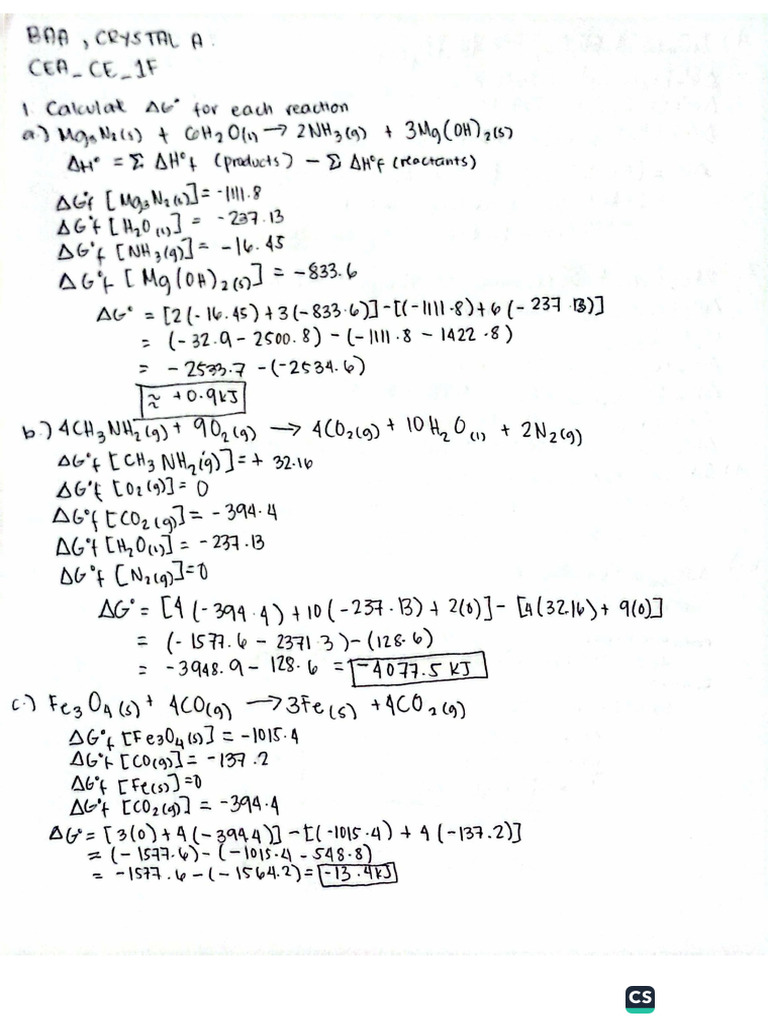 BAA, CRYSTAL A.
CEA_CE_1F
1. Calculat ΔG° for each reaction
a.) Mg3N2(s) + 6H2O(l) → 2NH3(g) + 3Mg(OH)2(s)
ΔH° = Σ ΔH°f (products) - Σ ΔH°f (reactants)
ΔG°f [Mg3N2(s)] = -1111.8
ΔG°f [H2O(l)] = -237.13
ΔG°f [NH3(g)] = -16.45
ΔG°f [Mg(OH)2(s)] = -833.6
ΔG° = [2(-16.45)+3(-833.6)]-[(-1111.8)+6(-237.13)]
= (-32.9-2500.8)-(-1111.8-1422.8)
= -2533.7-(-2534.6)
≈ +0.9kJ
b.) 4CH3NH2(g) + 9O2(g) → 4CO2(g) + 10H2O(l) + 2N2(g)
ΔG°f [CH3NH2(g)] = + 32.16
ΔG°f [O2(g)] = 0
ΔG°f [CO2(g)] = -394.4
ΔG°f [H2O(l)] = -237.13
ΔG°f [N2(g)] = 0
ΔG° = [4(-394.4)+10(-237.13)+2(0)]-[4(32.16)+9(0)]
= (-1577.6-2371.3)-(128.6)
= -3948.9-128.6 = -4077.5 KJ
c.) Fe3O4(s) + 4CO(g) → 3Fe(s) + 4CO2(g)
ΔG°f [Fe3O4(s)] = -1015.4
ΔG°f [CO(g)] = -137.2
ΔG°f [Fe(s)] = 0
ΔG°f [CO2(g)] = -394.4
ΔG° = [3(0)+4(-394.4)]-[(-1015.4)+4(-137.2)]
= (-1577.6)-(-1015.4-548.8)
= -1577.6-(-1564.2) = -13.4kJ
CS